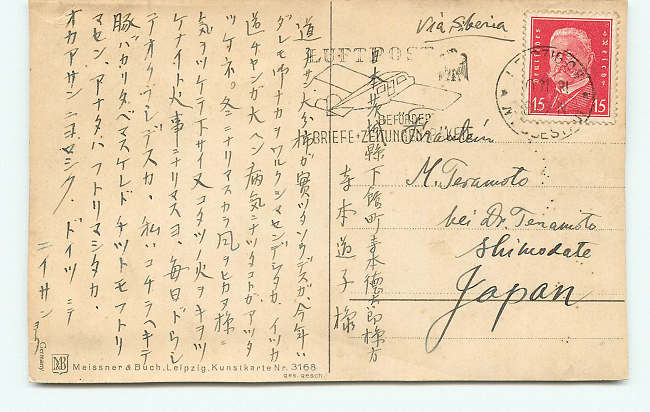 Via Siberia
Deutsches Reich
15 15
LUFTPOST
BEFÖRDER
BRIEFE + ZEITUNGEN
Fräulein
M. Teramoto
bei Dr. Teramoto
Shimodate
Japan
縣下館町寺本德太郎様方
寺本道子様
道子サン
ダレモ
道チャンガ大ヘン病気ニナッタコトガアッタ
ツケネ。冬ニナリマスカラ風ヲヒカヌ様ニ
気ヲツケテ下サイ又コタツノ火ヲキヲツ
ケナイト大事ニナリマスヨ、毎日ドウシ
テオクラシデスカ、私ハコチラヘキテ
豚バカリタベマスケレドチットモフトリ
マセン、アナタハフトリマシタカ、
オカアサンニヨロシク、ドイツニテ
ニイサンヨリ
Germany
MB
Meissner & Buch, Leipzig. Kunstkarte Nr. 3168
ges. gesch.